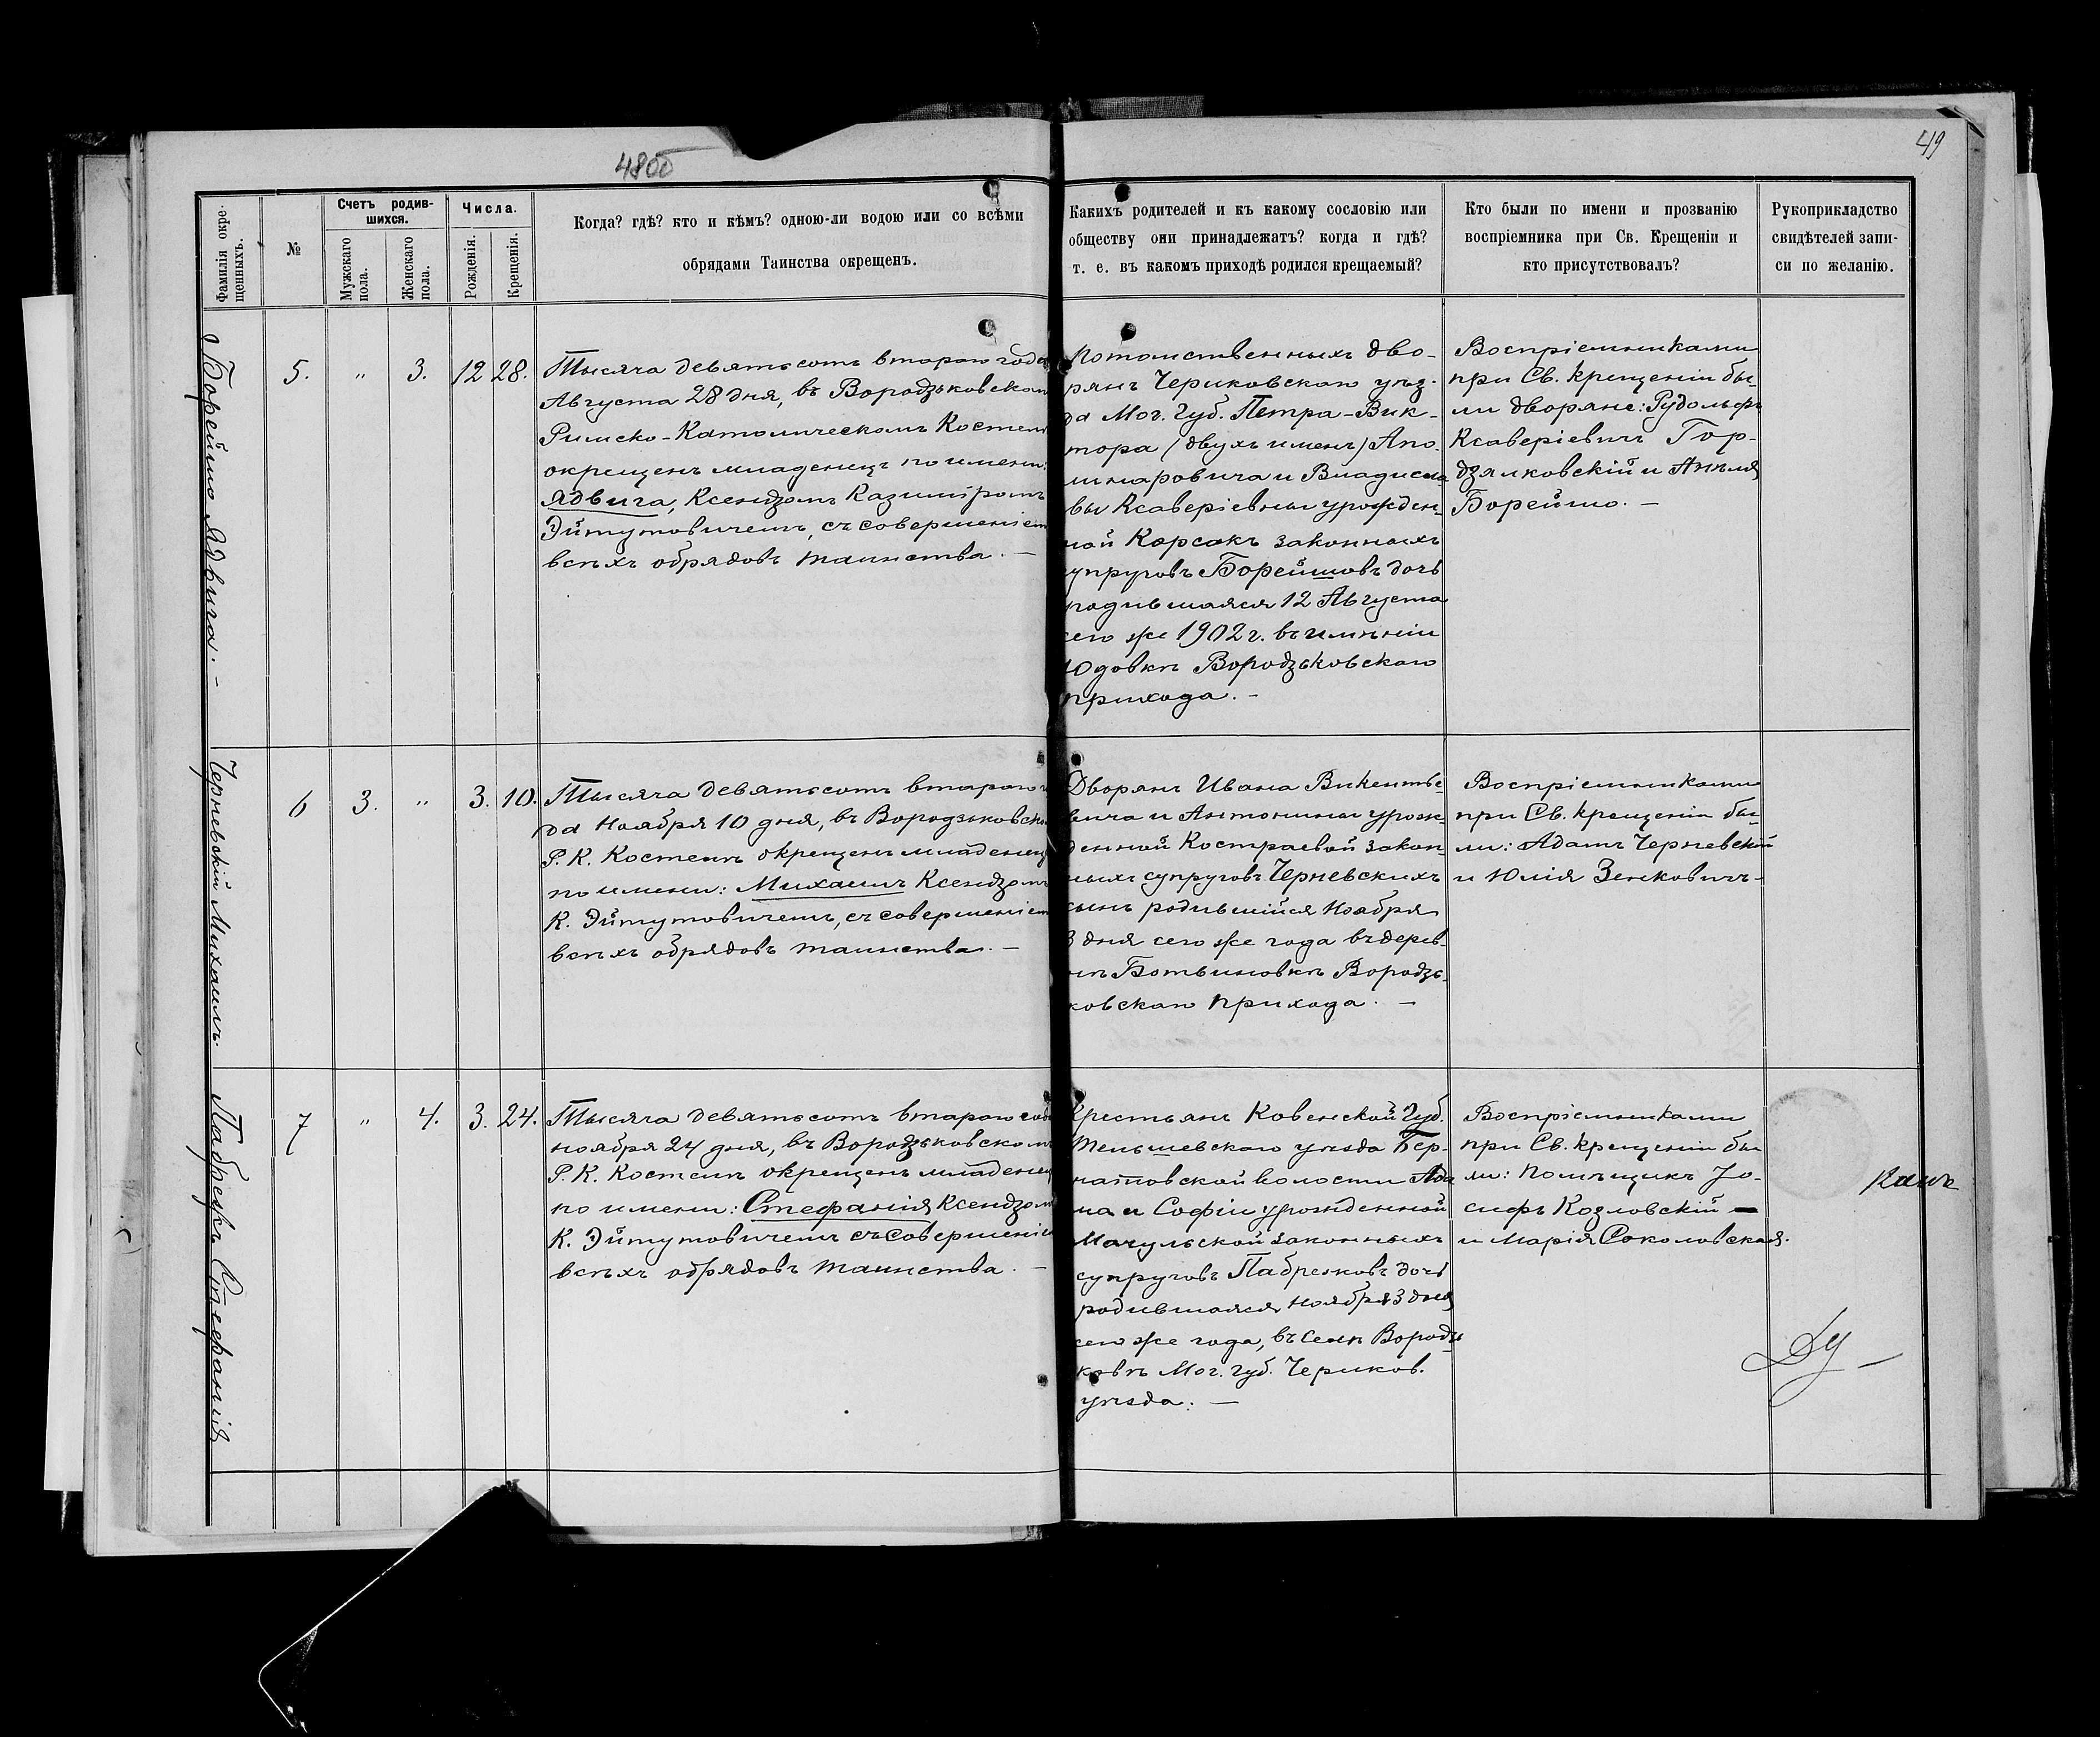 48об
49
Фамилія окре-
щенныхъ.
№
Счетъ родив-
шихся.
Мужскаго
пола.
Женскаго
пола.
Числа.
Рожденія.
Крещенія.
Когда? гдѣ? кто и кѣмъ? одною-ли водою или со всѣми
обрядами Таинства окрещенъ.
Какихъ родителей и къ какому сословію или
обществу они принадлежатъ? когда и гдѣ?
т. е. въ какомъ приходѣ родился крещаемый?
Кто были по имени и прозванію
воспріемника при Св. Крещеніи и
кто присутствовалъ?
Рукоприкладство
свидѣтелей запи-
си по желанію.
Борейшо Ядвига. –
5.
"
3.
12
28.
Тысяча девятьсотъ втораго года
Августа 28 дня, въ Вородзьковском
Римско-Католическомъ Костел
окрещенъ младенецъ по имени:
Ядвига, Ксендзомъ Казиміромъ
Эйтутовичемъ, съ совершеніем
всѣхъ обрядовъ таинства. –
Потомственныхъ дво-
рянъ Чериковскаго уѣз-
да Мог. Губ. Петра-Вик-
тора (двухъ именъ) Апо-
линаровича и Владисла
вы Ксаверіевны урожден-
ной Корсакъ законныхъ
упруговъ Борейшовъ дочь
родившаяся 12 Августа
сего же 1902 г. въ имѣніи
Юдовкѣ Вородзьковскаго
прихода. –
Воспріемниками
при Св. крещеніи бы-
ли дворяне: Рудольфъ
Ксаверіевичъ Гор-
дзялковскій и Анѣля
Борейшо. –
Черневскій Михаилъ.
6
3.
"
3.
10.
Тысяча девятьсотъ втораго г
да Ноября 10 дня, въ Вородзьковско
Р. К. Костелѣ окрещенъ младенец
по имени: Михаилъ Ксендзомъ
К. Эйтутовичемъ, съ совершеніем
всѣхъ обрядовъ таинства. –
Дворянъ Ивана Викентье-
вича и Антонины урож-
денной Костраевой закон-
ныхъ супруговъ Черневскихъ
сынъ родившійся Ноября
3 дня сего же года въ дерев-
нѣ Ботвиновкѣ Вородзь-
ковскаго прихода. –
Воспріемниками
при Св. крещеніи бы-
ли: Адамъ Черневскій
и Юлія Зенковичъ-
Пабрежъ Стефанія
7
"
4.
3.
24.
Тысяча девятьсотъ втораго года
ноября 24 дня, въ Вородзьковскомъ
Р. К. Костелѣ окрещенъ младенец
по имени: Стефанія Ксендзом
К. Эйтутовичемъ съ совершеніе
всѣхъ обрядовъ таинства. –
Крестьянъ Ковенской Губ.
Тельшевскаго уѣзда Бер-
натовской волости Ада
ма и Софіи урожденной
Мачульской законныхъ
супруговъ Пабрежовъ дочь
родившаяся Ноября 3 дня
сего же года, въ селѣ Вородзь
ковѣ Мог. губ. Чериков.
уѣзда. –
Воспріемниками
при Св. крещеніи бы
ли: Помѣщикъ Іо-
сифъ Козловскій –
и Марія Соколовская.